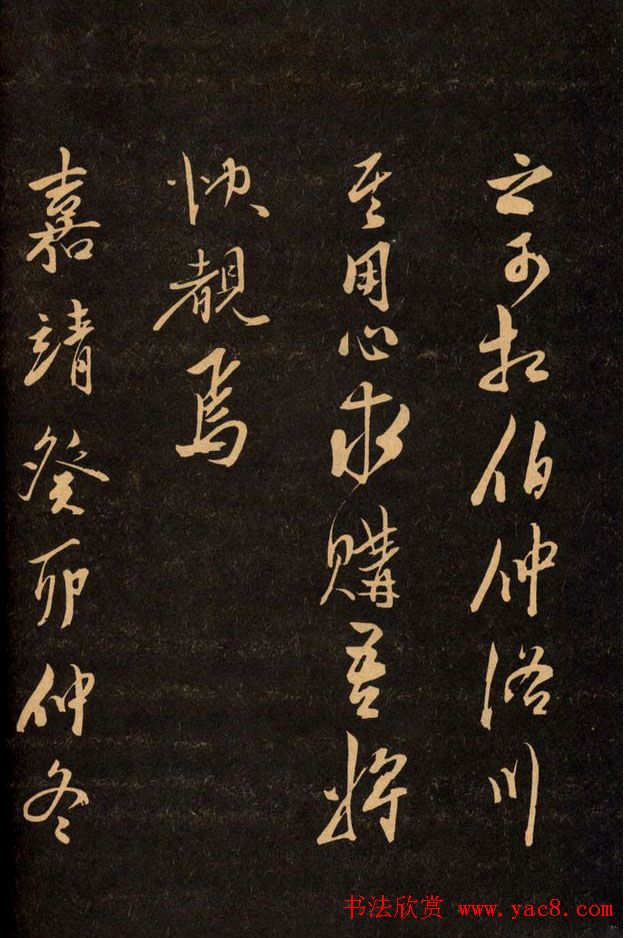 之可相伯仲浴川
其用心求購吾將
快覩焉
嘉靖癸卯仲冬
书法欣赏 www.yac8.com